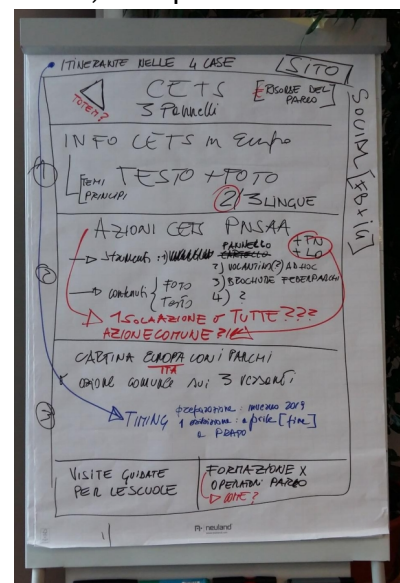 • ITINERANTE NELLE 4 CASE
SITO
TOTEM?
CETS
3 Pannelli
[€ RISORSE DEL PARCO]
SOCIAL [FB + IG]
1
INFO CETS in Europa
TEMI
PRINCIPI
TESTO + FOTO
2/3 LINGUE
2
AZIONI CETS PNSAA
+ PN
+ LO
→ Strumenti 1)
PANNELLO
CARTELLO
2) VOLANTINO(?) AD HOC
3) BROCHURE FEDERPARCHI
4) ?
→ contenuti { FOTO
TESTO
→ 1 SOLA AZIONE o TUTTE ???
AZIONE COMUNE ?!
3
CARTINA EUROPA CON I PARCHI
ITA
azione comune sui 3 versanti
TIMING
preparazione: inverno 2019
1 : aprile [fine]
a PEIO
VISITE GUIDATE
PER LE SCUOLE
FORMAZIONE X
OPERATORI PARCO
→ COME?
neuland